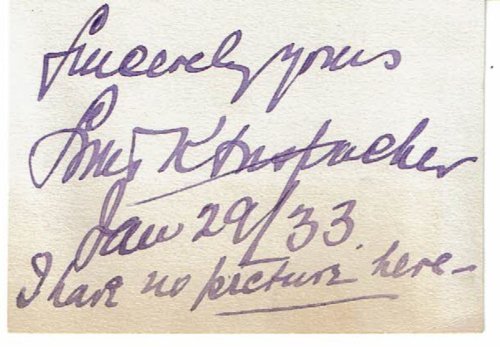 Sincerely yours
Louis K Anspacher
Jan 29/33.
I have no picture here—